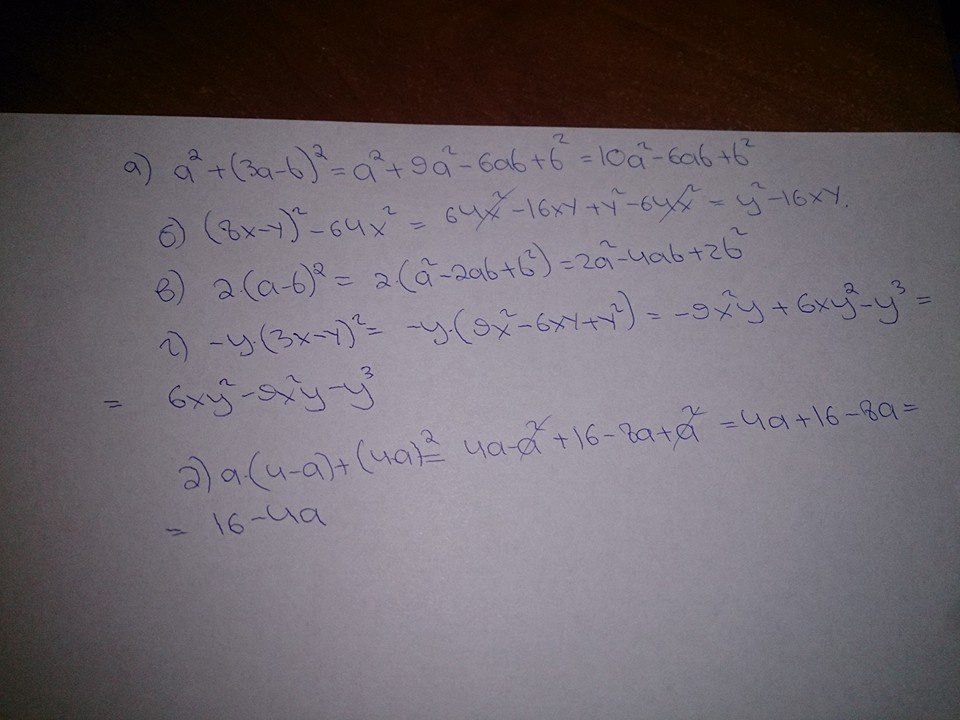 а) a² + (3a-b)² = a² + 9a² - 6ab + b² = 10a² - 6ab + b²
б) (8x-y)² - 64x² = 64x² - 16xy + y² - 64x² = y² - 16xy.
в) 2·(a-b)² = 2·(a² - 2ab + b²) = 2a² - 4ab + 2b²
г) -y·(3x-y)² = -y·(9x² - 6xy + y²) = -9x²y + 6xy² - y³ =
= 6xy² - 9x²y - y³
д) a·(4-a) + (4a)² = 4a - a² + 16 - 8a + a² = 4a + 16 - 8a =
= 16 - 4a